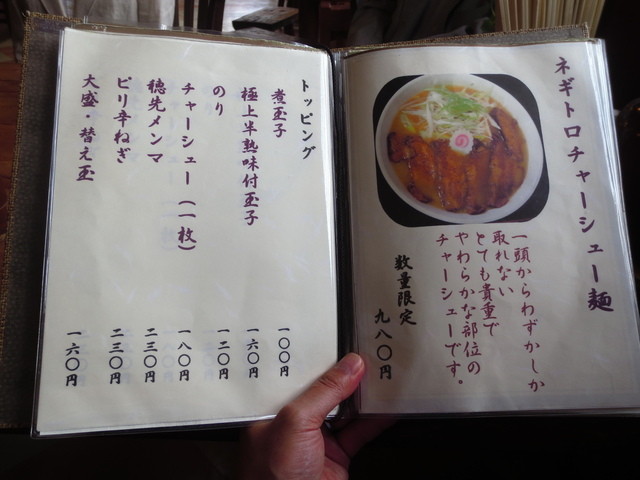 ネギトロチャーシュー麺
一頭からわずかしか
取れない
とても貴重で
やわらかな部位の
チャーシューです。
数量限定
九八〇円
トッピング
煮玉子 一〇〇円
極上半熟味付玉子 一六〇円
のり 一二〇円
チャーシュー(一枚) 一八〇円
穂先メンマ 二三〇円
ピリ辛ねぎ 二三〇円
大盛・替え玉 一六〇円